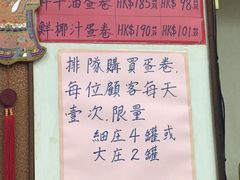 鮮牛油蛋卷 HK$185 HK$98
鮮椰汁蛋卷 HK$190 HK$101
排隊購買蛋卷,
每位顧客每天
壹次.限量
細庄4罐或
大庄2罐